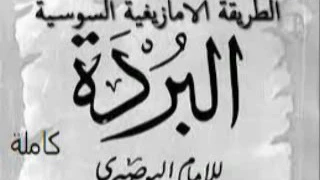 الطريقة الامازيغية السوسية
البُردَة
كاملة
للإمام البوصيري